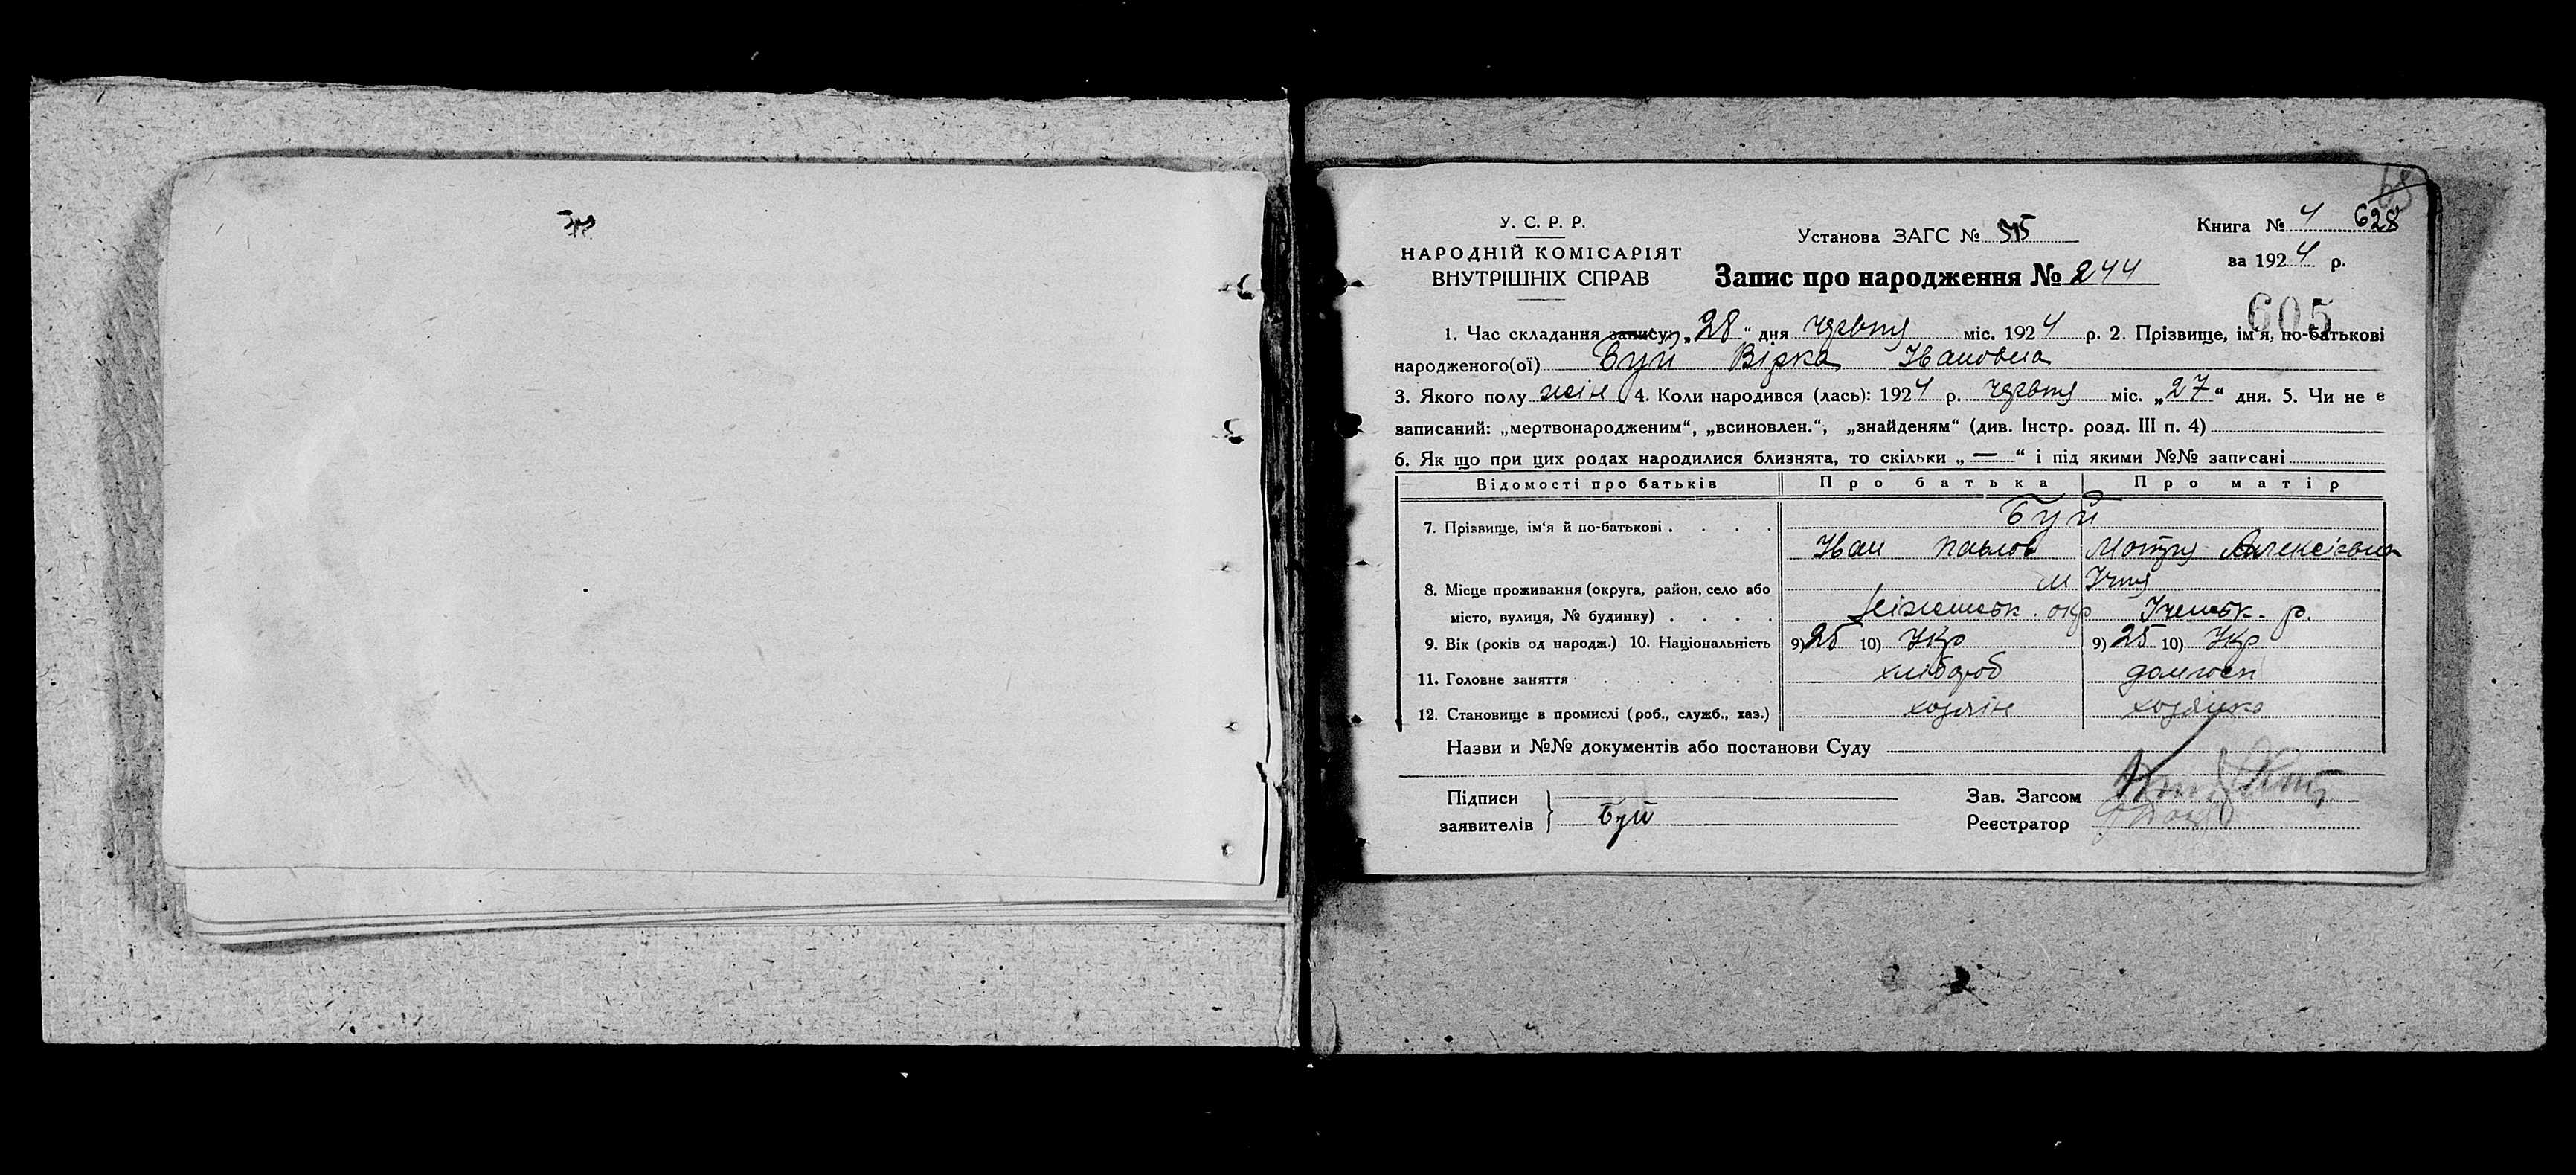 У. С. Р. Р.
НАРОДНІЙ КОМІСАРІЯТ
ВНУТРІШНІХ СПРАВ
Установа ЗАГС №
Запис про народження № 244
Книга № 4 628
за 1924 р.
605
1. Час складання запису: „28“ дня червня міс. 1924 р. 2. Прізвище, ім'я, по-батькові
народженого(ої) Буй Вірка Ивановна
3. Якого полу жін 4. Коли народився (лась): 1924 р. червня міс. „27“ дня. 5. Чи не е
записаний: „мертвонародженим“, „всиновлен.“, „знайденям“ (див. Інстр. розд. III п. 4)
6. Як що при цих родах народилися близнята, то скільки „—“ і під якими №№ записані
Відомості про батьків Про батька Про матір
7. Прізвище, ім'я й по-батькові . . . . Буй
Иван Павлов Мотря Алексієвна
8. Місце проживання (округа, район, село або м Ічня
місто, вулиця, № будинку) . . . . Ніженськ. окр Іченськ. р.
9. Вік (років од народж.) 10. Національність 9) 25 10) Укр 9) 25 10) Укр
11. Головне заняття . . . . . . хлібороб домгосп
12. Становище в промислі (роб., служб., хаз.) хозяїн хозяйка
Назви и №№ документів або постанови Суду
Підписи
заявителів } Буй
Зав. Загсом
Реєстратор